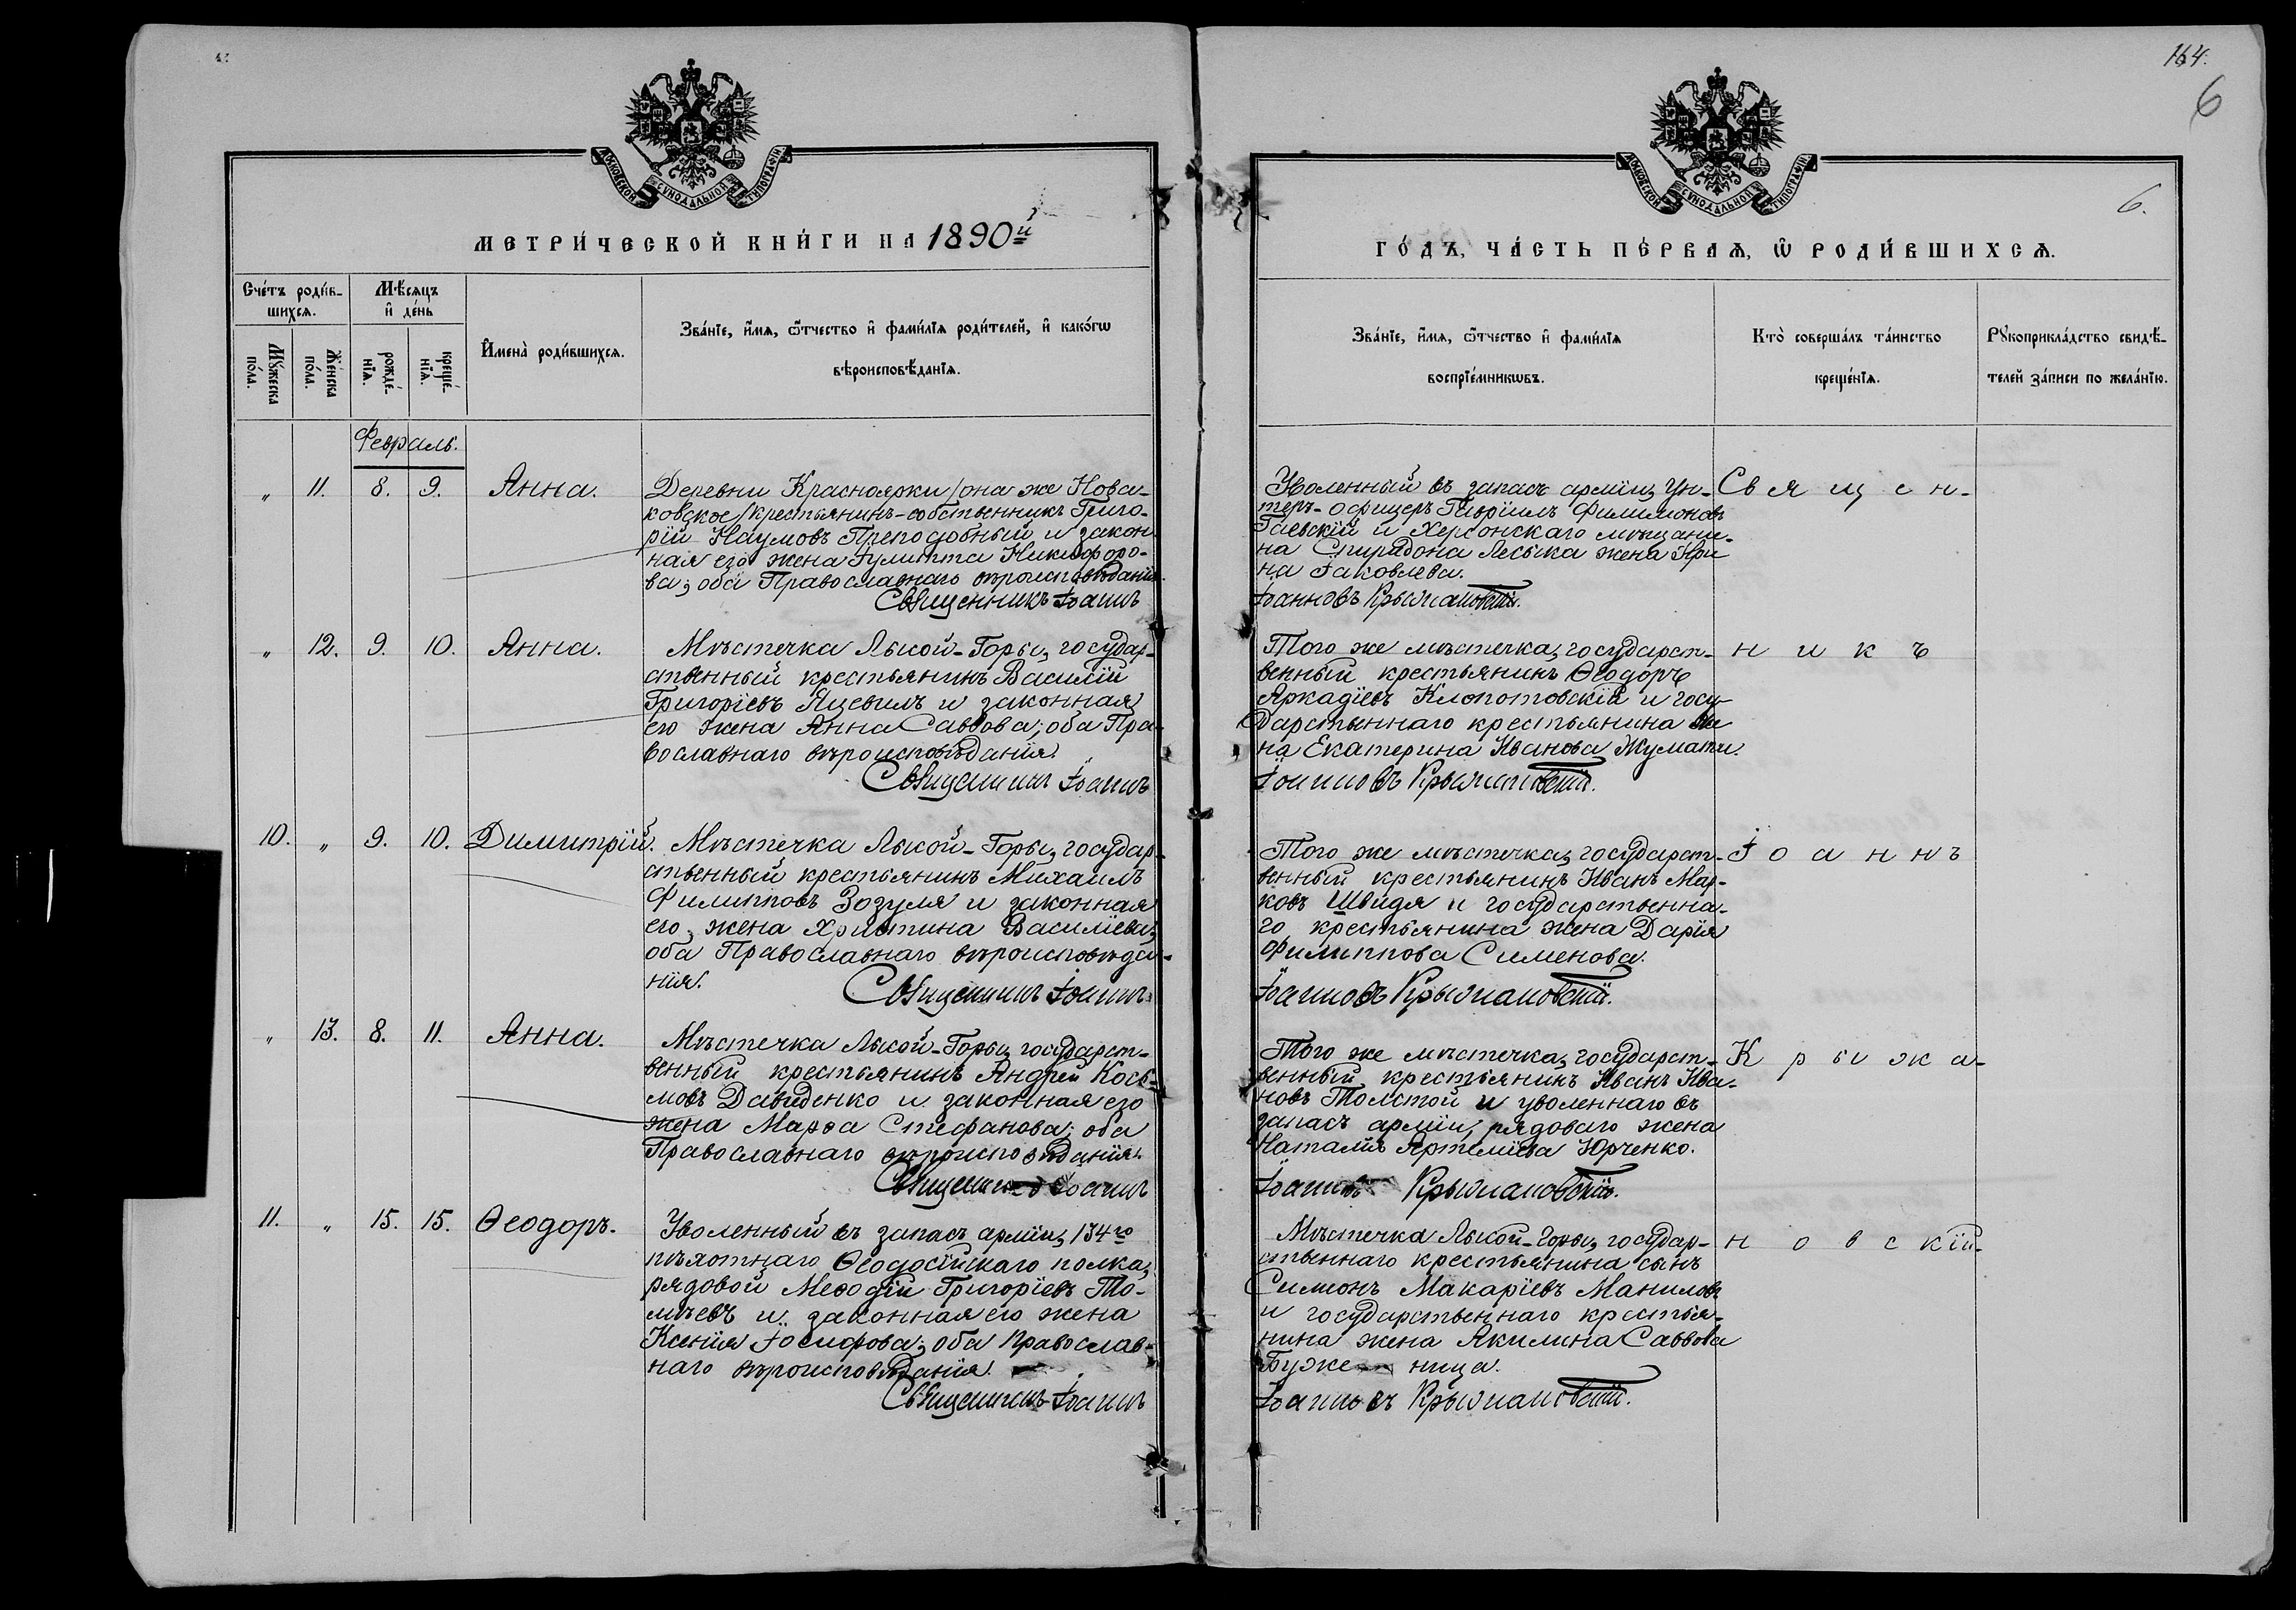 164.
6
МОСКОВСКОЙ СѴНОДАЛЬНОЙ ТИПОГРАФІИ
МЕТРИ́ЧЕСКОЙ КНИ́ГИ НА 1890й
Сче́тъ роди́в-
шихсѧ.
Мѣ́сѧцъ
и҆ де́нь
Мꙋ́жеска
по́ла.
Же́нска
по́ла.
рожде́-
нїѧ.
креще́-
нїѧ.
И҆мена̀ роди́вшихсѧ.
Зва́нїе, и҆́мѧ, ѻ҆́тчество и҆ фами́лїѧ роди́телей, и҆ како́гѡ
вѣроисповѣ́данїѧ.
Февраль.
" 11. 8. 9. Анна.
Деревни Красноярки /она же Нова-
ковское/ крестьянинъ-собственникъ Григо-
рій Наумовъ Преподобный и закон-
ная его жена Гулитта Никифоро-
ва; оба Православнаго вѣроисповѣданія.
Священникъ Іоаннъ
" 12. 9. 10. Анна.
Мѣстечка Лысой-Горы, государ-
ственный крестьянинъ Василій
Григоріевъ Яцевилъ и законная
его жена Анна Саввова; оба Пра-
вославнаго вѣроисповѣданія.
Священникъ Іоаннъ
10. " 9. 10. Димитрій.
Мѣстечка Лысой-Горы, государ-
ственный крестьянинъ Михаилъ
Филипповъ Зозуля и законная
его жена Христина Василіева;
оба Православнаго вѣроисповѣда-
нія.
Священникъ Іоаннъ
" 13. 8. 11. Анна.
Мѣстечка Лысой-Горы, государст-
венный крестьянинъ Андрей Кось-
мовъ Давиденко и законная его
жена Марѳа Стефанова; оба
Православнаго вѣроисповѣданія.
Священникъ Іоаннъ
11. " 15. 15. Ѳеодоръ.
Уволенный въ запасъ арміи, 134го
пѣхотнаго Ѳеодосійскаго полка,
рядовой Меѳодій Григоріевъ То-
мѣевъ и законная его жена
Ксенія Іосифова; оба Православ-
наго вѣроисповѣданія.
Священникъ Іоаннъ
МОСКОВСКОЙ СѴНОДАЛЬНОЙ ТИПОГРАФІИ
6.
ГО́ДЪ, ЧА́СТЬ ПЕ́РВАѦ, Ѽ РОДИ́ВШИХСѦ.
Зва́нїе, и҆́мѧ, ѻ҆́тчество и҆ фами́лїѧ
воспрїе́мникѡвъ.
Кто̀ соверша́лъ та́инство
креще́нїѧ.
Рꙋкоприкла́дство свидѣ́-
телей за́писи по жела́нїю.
Уволенный въ запасъ арміи, Ун-
теръ-офицеръ Гавріилъ Филимоновъ
Гаевскій и Херсонскаго мѣщани-
на Спиридона Леська жена Ири-
на Іаковлева.
Іоанновъ Крыжановскій.
Того же мѣстечка, государст-
венный крестьянинъ Ѳеодоръ
Аркадіевъ Клопотовскій и госу-
дарственнаго крестьянина же-
на Екатерина Иванова Жумати.
Іоанновъ Крыжановскій.
Того же мѣстечка, государст-
венный крестьянинъ Иванъ Мар-
ковъ Швидя и государственна-
го крестьянина жена Дарія
Филиппова Сименова.
Іоанновъ Крыжановскій.
Того же мѣстечка, государст-
венный крестьянинъ Иванъ Ива-
новъ Толстой и уволеннаго въ
запасъ арміи, рядоваго жена
Наталія Артеміева Юрченко.
Іоанновъ Крыжановскій.
Мѣстечка Лысой-Горы, государ-
ственнаго крестьянина сынъ
Симонъ Макаріевъ Маниловъ
и государственнаго крестья-
нина жена Акилина Саввова
Буже ница.
Іоанновъ Крыжановскій.
Священ-
никъ
Іоаннъ
Крыжа-
новскій.